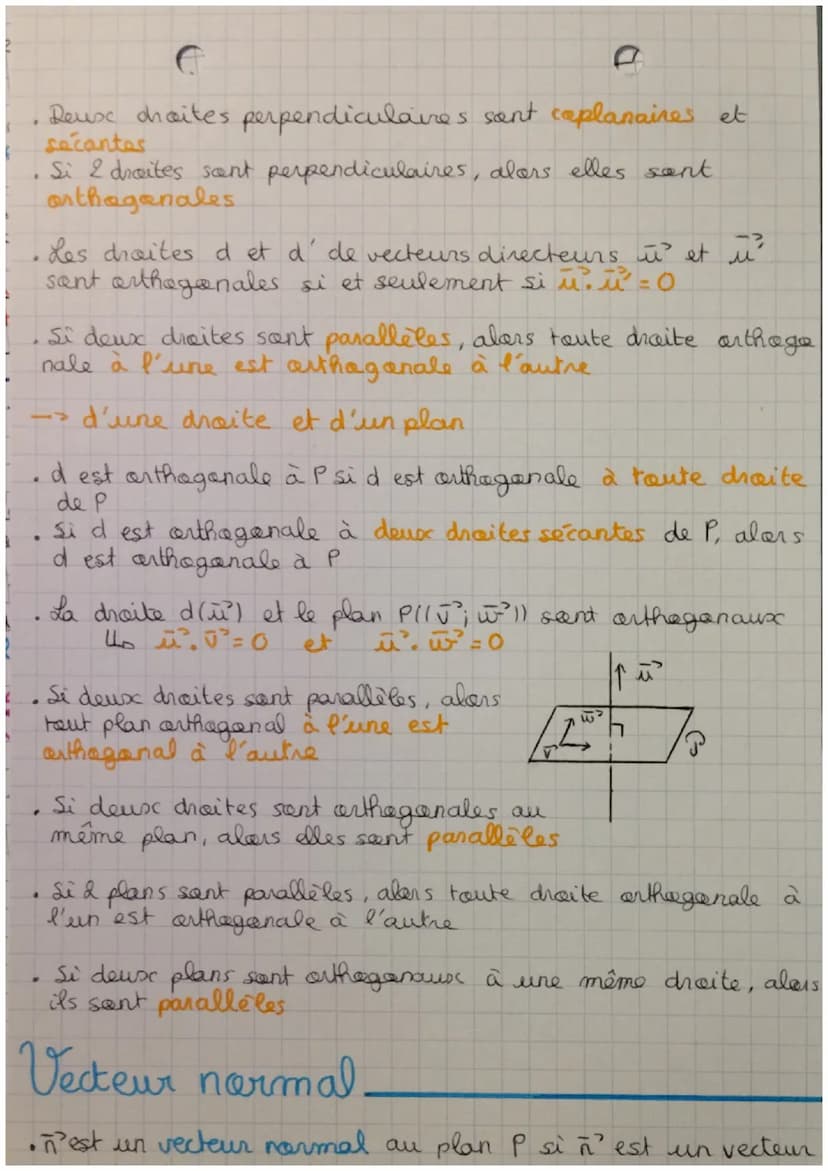 . Deux droites perpendiculaires sont coplanaires et
sécantes
. Si 2 droites sont perpendiculaires, alors elles sont
orthogonales
. Les droites d et d' de vecteurs directeurs u⃗ et u⃗'
sont orthogonales si et seulement si u⃗.u⃗' = 0
. Si deux droites sont parallèles, alors toute droite orthogo
nale à l'une est orthogonale à l'autre
--> d'une droite et d'un plan
. d est orthogonale à P si d est orthogonale à toute droite
de P
. Si d est orthogonale à deux droites sécantes de P, alors
d est orthogonale à P
. La droite d(u⃗) et le plan P((v⃗; w⃗)) sont orthogonaux
↳ u⃗.v⃗ = 0 et u⃗.w⃗ = 0
u⃗
. Si deux droites sont parallèles, alors
tout plan orthogonal à l'une est
orthogonal à l'autre
w⃗
v⃗
P
. Si deux droites sont orthogonales au
même plan, alors elles sont parallèles
. Si 2 plans sont parallèles, alors toute droite orthogonale à
l'un est orthogonale à l'autre
. Si deux plans sont orthogonaux à une même droite, alors
ils sont parallèles
Vecteur normal
. n⃗ est un vecteur normal au plan P si n⃗ est un vecteur